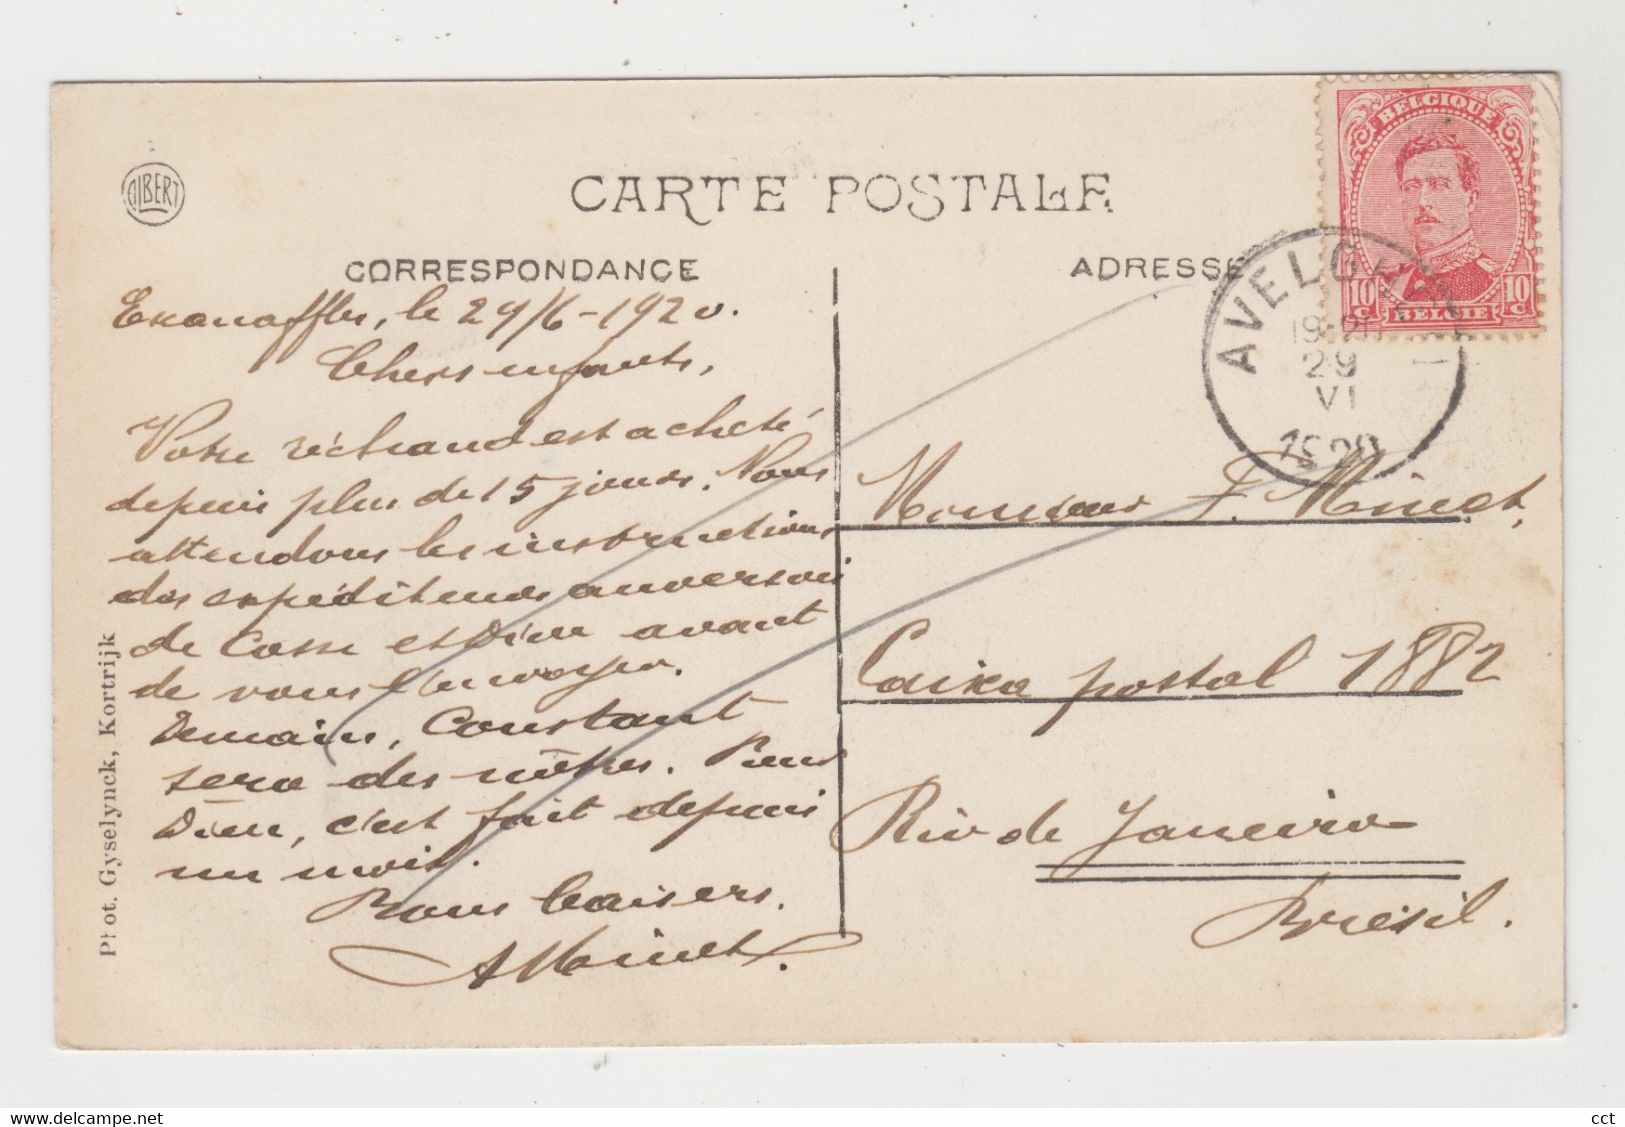 ALBERT
CARTE POSTALE
CORRESPONDANCE
ADRESSE
BELGIQUE
10 c BELGIE 10 c
AVELGHEM
29
VI
1920
Escanaffles, le 29/6-1920.
Chers enfants,
Votre réchaud est acheté
depuis plus de 15 jours. Nous
attendons les instructions
des expéditeurs anversois
de Casse et Dieu avant
de vous l'envoyer.
Demain, Constant
sera des nôtres. Pieus
Dieu, c'est fait depuis
un mois.
Bons baisers.
A Minet.
Monsieur F. Minet,
Caixa postal 1882
Rio de Janeiro
Brésil.
Phot. Gyselynck, Kortrijk
cct